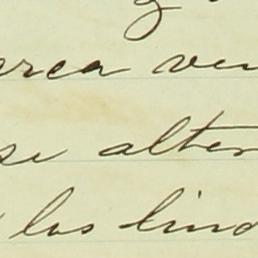 erca ven
se alter
los lind